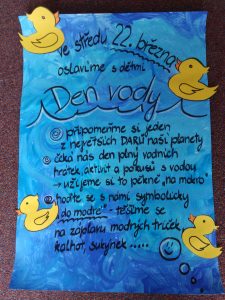 ve středu 22. března
oslavíme s dětmi
Den vody
@ připomeňme si jeden
z největších DARŮ naší planety
@ čeká nás den plný vodních
hrátek, aktivit a pokusů s vodou
→ užijeme si to pěkně "na mokro"
@ hoďte se s námi symbolicky
"do modré" - těšíme se
na záplavu modrých triček,
kalhot, sukýnek .....